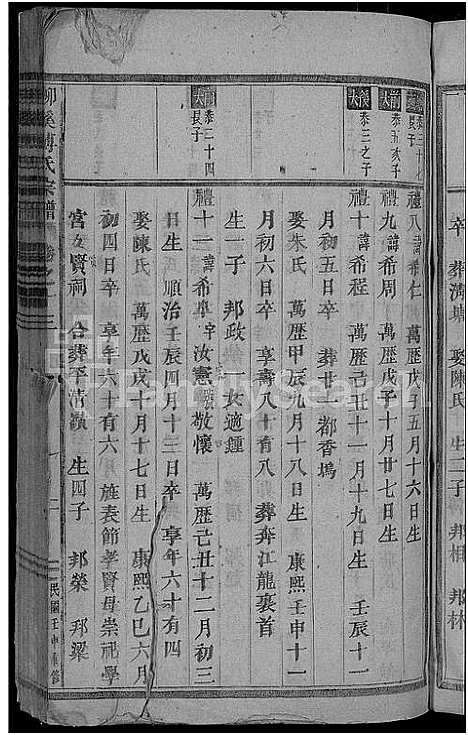 卒 葬清塘 娶陳氏 生二子 邦相 邦林
禮八 諱希仁 萬歷戊子五月十六日生
長子
禮九 諱希周 萬歷戊子十月廿七日生
前大
泰五次子
禮十 諱希程 萬歷己丑十一月十九日生 壬辰十一
後大
泰三之子
月初五日卒 葬廿一都香塢
娶朱氏 萬歷甲辰九月十八日生 康熙壬申十一
月初六日卒 享壽八十有八 葬奔江龍裏首
生一子 邦政 一女適鍾
禮十一 諱希 字汝憲 號敬懷 萬歷己丑十二月初三
前大
泰二十四
長子
日生 順治壬辰四月十三日卒 享年六十有四
娶陳氏 萬歷戊戌十月十七日生 康熙乙巳六月
初四日卒 享年六十有六 旌表節孝賢母崇祀學
宮女賢祠 合葬平清嶺 生四子 邦榮 邦梁
柳溪傅氏宗譜
民國壬申重修